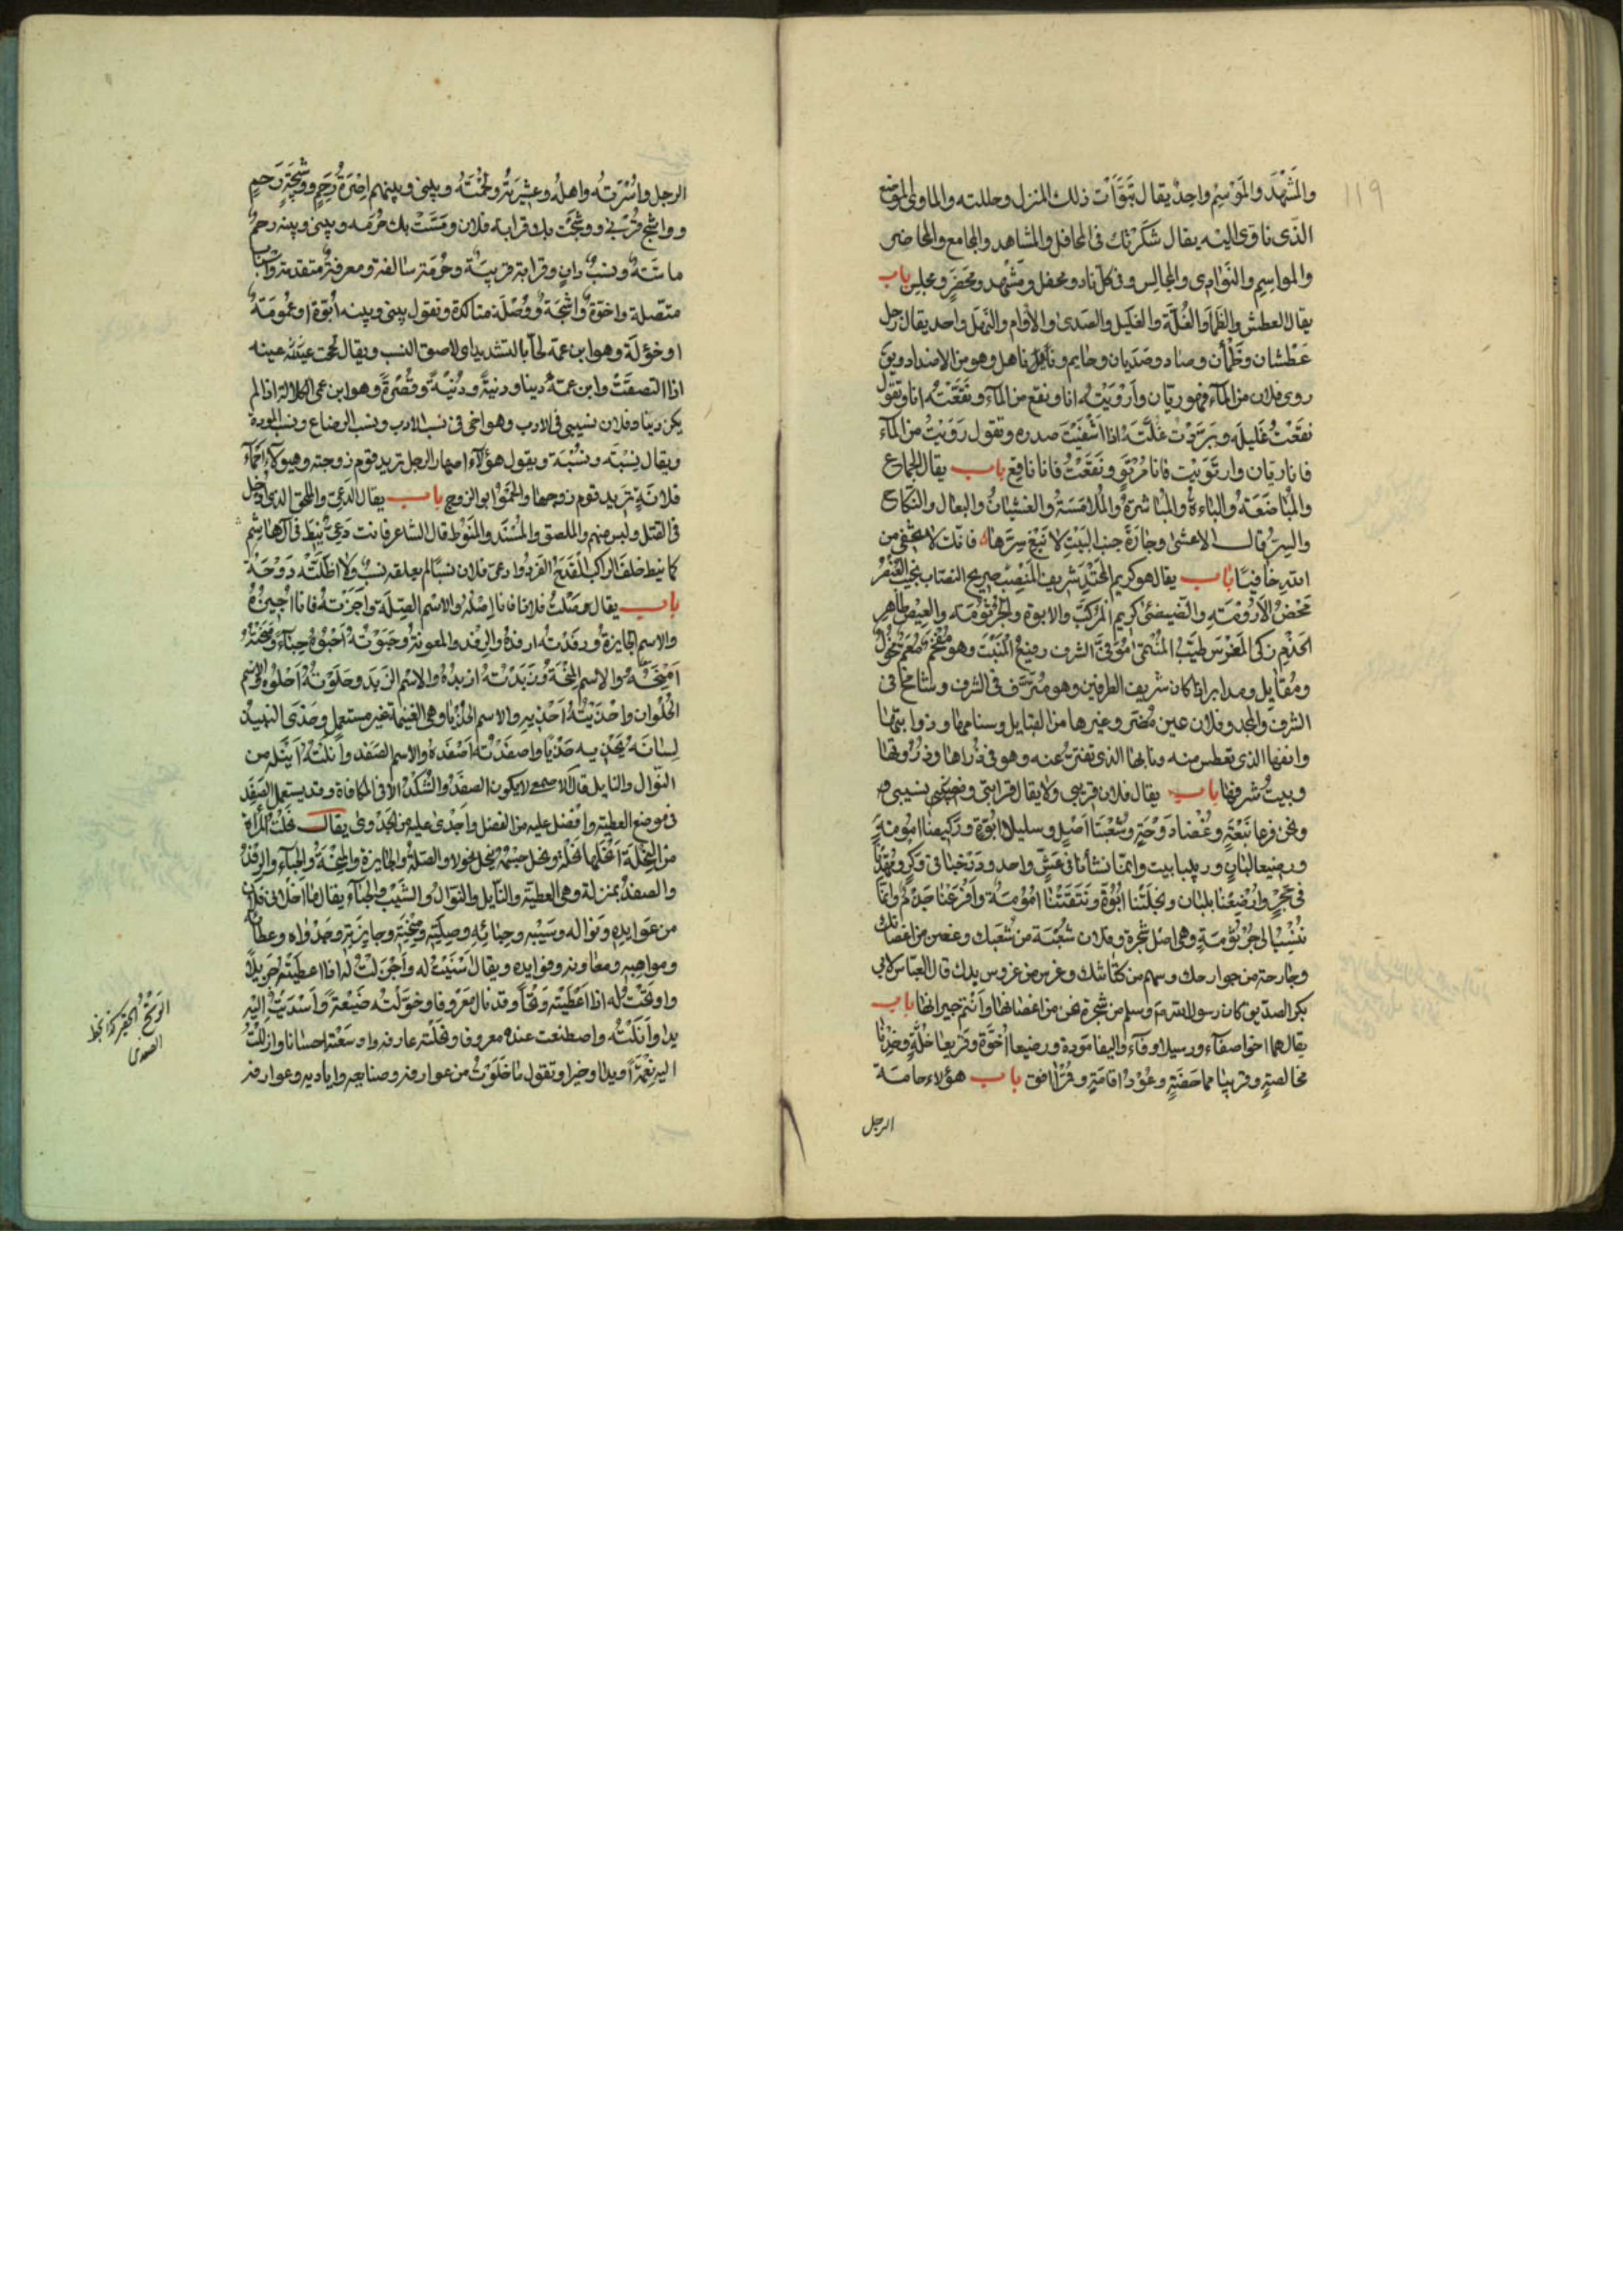 ١١٩
والمَشْهَد والمَوْسِم واحدٌ يقال تبَوَّأت ذلك المنزل وحللته والماوى الموضع
الذى ناوى اليه يقال شكرتك فى المحافل والمشاهد والمجامع والمحاضر
والمواسِم والنَوادى والمجالِس وفى كل ناد ومحفل ومَشْهد ومَحضَر ومجلِس باب
يقال العطش والظمأ والغُلّة والغَليل والصَدى والأوام والنهَل واحد يقال رجل
عَطْشان وظَمْأن وصاد وصَدْيان وحايم وناهل وهو من الاضداد وبق
روى فلان من المآء فهو ريّان وأرْوَيْتُه انا ونقع من المآء ونَقَعْتُه انا وتقول
نقَعْتُ غليله وبَرّدْت غُلّته اذا اشْفَيْتَ صدره وتقول رَوَيْتُ من المآء
فانا ريّان وارتَوَيْت فانا مُرْتَوٍ ونَقَعْتُ فانا ناقع باب يقال الجماع
والمُباضَعَة والبَاءة والمُباشرَة والمُلامَسَة والغشْيانُ والبِعال والنكاح
والسِرّ قال الاعشى وجارَةَ جنب البَيْتِ لا تَبْغِ سِرّها فانّك لا تخفى من
الله خافيًا باب يقال هو كريم المَحْتِد شريف المَنْصِب صريح النصاب نجيب العُنْصُر
مَحْضُ الأرُومَة والضِيضِئ كريم المُرَكَّب والابوة والجُرْثُومَة والعِيص طاهر
الجذْم زكى المَغْرَس طيّب المُنْتَمى فى الشرف رفيع المَنْبَت وهو مُعَمّ مُخْوَل
ومُقابل ومدابر اذا كان شريف الطرفين وهو فى الشرف وشامخا فى
الشرف والمجد وفلان عين مُضَر وغيرها من القبايل وسنامها وذوابتها
وانفها الذى تعطس منه ونابها الذى تفترّ عنه وهو فى ذُراها وذُرْوتها
وبيتُ شرفها باب يقال فلان قريبى ولا يقال قرابتى ونسيبى
ونحن فرعا نَبْعَةٍ وغُصْنا دَوْحَةٍ وشُعْبَتا اَصْلٍ وسليلا ابُوّةٍ وركيضا امُومَةٍ
ورضيعا لبانٍ وربيبا بيت وانمّا نشأنا فى عَشّ واحد ودرَجْنا فى وَكرٍ ومُهِّدْنا
فى حَجْر وارْضِعْنا بلبان ونجَلَتْنا ابُوّة ونَتَقَتْنا امُومَة وافرَعْنا جِذْم وانمّا
نُنْسَبُ الى جُرْثُومَةٍ وهى اصْل شجرة وفلان شُعْبَة من شُعَبك وغصن من اغصانك
وجارحة من جوارحك وسهم من كنانتك وغرس من غروس يدك قال العبّاس لابى
بكر الصدّيق كان رسول الله صم وسلم من شجرة نحن من اغصانها وانتم جيرانها باب
يقال هما اخوا صفآء ورسيلا وفآء واليفا مَودة ورضيعا اُخوَّة وقريعا خلّة وخِدْنا
مخالصةٍ وقرينا مماحَضَةٍ باب هؤلاء حامّة
الرجل
الرجل واُسْرَتُه واهلُه وعشيرتُه ولُحْمَتُه وبينى وبينهم اصِرَةُ رَحِمٍ ووشيجَةِ رَحِمٍ
وواشِج قُرْبى ووشجَت بك قرابة فلان ومَسَّتْ بك حُرمَة وبينى وبينه رحمٌ
ماسّة ونسبٌ دانٍ وقرابة قريبَة وحُرْمَة سالفة ومعرفة متقدمة واسباب
متصلة واخوّة واشجَة ووُصْلَة متاكدة وتقول بينى وبينه ابُوّة او عُمُومَة
او خؤلَة وهو ابن عمه لحّا بالتشديد اى لاصق النسب ويقال لححت عَيْنُه
اذا التصقَتْ وابن عمّه دِينا ودِنْيةً ودُنْيَةً وقُصْرَةً وهو ابن عمى الكلالة اذا لم
يكن دِينا وفلان نسيبى فى الادب وهو اخى فى نسب الادب ونسب الرضاع ونسب المودة
ويقال نِسْبَة ونُسْبَة ويقول هؤلآء اصهار الرجل تريد قوم زوجته وهؤلآء احمآء
فلانَةٍ تريد قوم زوجها والحَمْوُ ابو الزوج باب يقال الدَعِىّ والملحق الذى ادخل
فى القبيل وليس منهم والملصق والمُسْنَد والمَنُوط قال الشاعر فانت دَعِىّ نِيطَ فى آل هاشم
كما نيط خلف الراكب القَدَحُ الفَردُ وادعى فلان نسبًا لم يعلقه نسبٌ ولا اظلّتْه دَوْحَة
باب يقال وَصَلْتُ فلانا فانا اصِلُه والاسْم الصِلَة وأجَزْتُه فانا اُجيزُه
والاسم الجايزة ورفَدْته ارفِدُه والرِفْد والمعونة وحَبَوْتُه اَحْبُوهُ حِبآءً ومَنَحْتُه
اَمْنَحُه والاسم المِنْحَة وزَبَدْتُه ازبِدُه والاسْم الزَبَد وحَلَوْتُه اَحْلُوه والاسم
الحُلْوان واحْذَيْتُه اُحْذِيه والاسم الحُذْيا وهى الغنيمة غير مستعمل وحَذَى النبيذ
لِسانَه يَحْذيه حَذْيا واصفَدْتُه اُصْفِدُه والاسم الصَفَد وانَلْتُه اُنيله من
النوال والنايل قال الاصمعى لا يكون الصفَدُ والشُكْدُ الا فى المكافاة وقد يستعمل الصَفَد
فى موضع العطيّة وافْضَل عليه من الفضل واجْدى عليه من الجَدْوى يقال نحلْتُ المرأة
من النِحْلَة اَنْحَلُها نحْلَة ونحل جسْمُه ينحل نُحولا والصِلةُ والجايزة والمِنْحَة والحِبآء والرِفْدُ
والصفَدُ بمنزلة وهى العطيّة والنايل والنوال والسَيْب والحبآء يقال ما اخلانى فلان
من عَوايده ونَواله وسَيْبه وحِبائِه وصِلَتِه ومِنْحَتِه وجايزَتِه وجَدْواه وعطائه
ومواهبه ومعاونه وفوايده ويقال اَسْنَيْتُ له واَجْزَلْتُ له اذا اعطَيْتَه جَزيلًا
واوتَحْتُ له اذا اعْطَيْتَه وَتْحًا وقد نال مَعْروفا وخوّلْته ضَيْعَةً واَسْدَيْتُ اليه
يدا وانَلْتُه واصطنعت عنده معروفا ونحَلْته عارفه واوسَعْته احسانا وازْلَلْتُ
اليه نِعْمَةً ويدا وخيرا وتقول ما خَلَوْتُ من عوارفه وصنايعه واياديه وعوارفه
الوَتْحُ الحقير كذا بخط
الصغدى